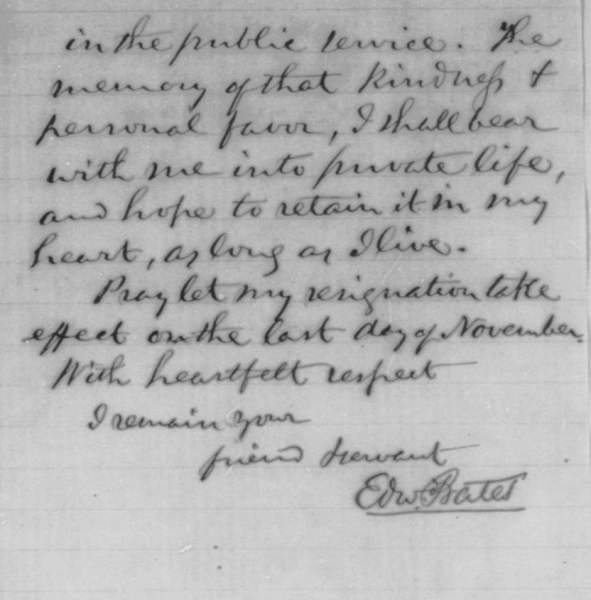 in the public service. The
memory of that kindness &
personal favor, I shall bear
with me into private life,
and hope to retain it in my
heart, as long as I live.
Pray let my resignation take
effect on the last day of November.
With heartfelt respect
I remain your
friend & servant
Edw. Bates